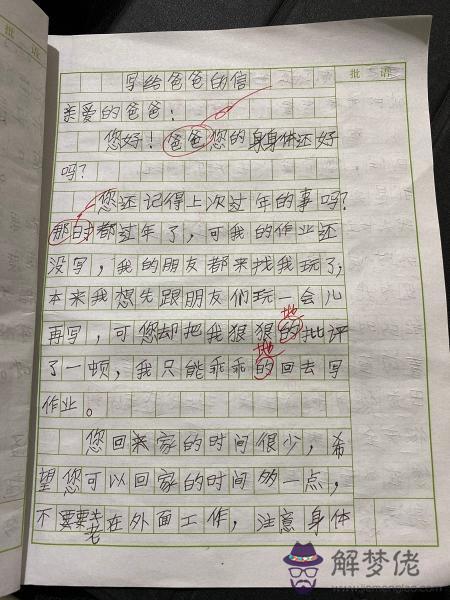 批 语
写给爸爸的信
批 语
亲爱的爸爸：
您好！爸爸您的身身体还好
吗？
您还记得上次过年的事吗？
那时都过年了，可我的作业还
没写，我的朋友都来找我玩了，
本来我想先跟朋友们玩一会儿
地
再写，可您却把我狠狠的批评
地
了一顿，我只能乖乖的回去写
作业。
您回来家的时间很少，希
望您可以回家的时间多一点，
不要老在外面工作，注意身体
解梦佬